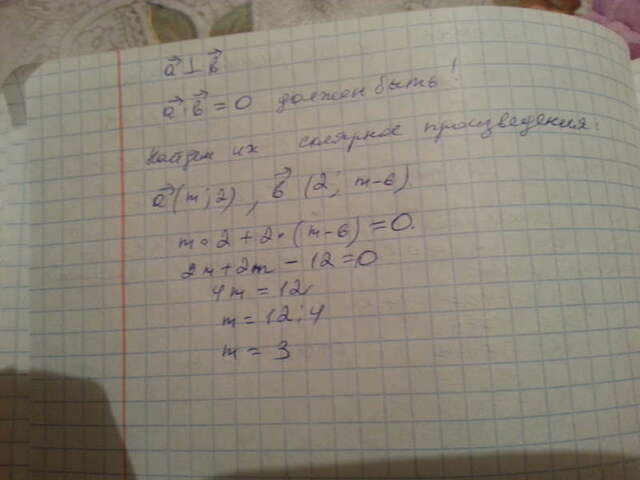 a⃗ ⊥ b⃗
a⃗ · b⃗ = 0 должен быть!
Найдем их скалярное произведения.
a⃗ (m; 2), b⃗ (2; m-6).
m · 2 + 2 · (m-6) = 0.
2m + 2m - 12 = 0
4m = 12
m = 12 : 4
m = 3